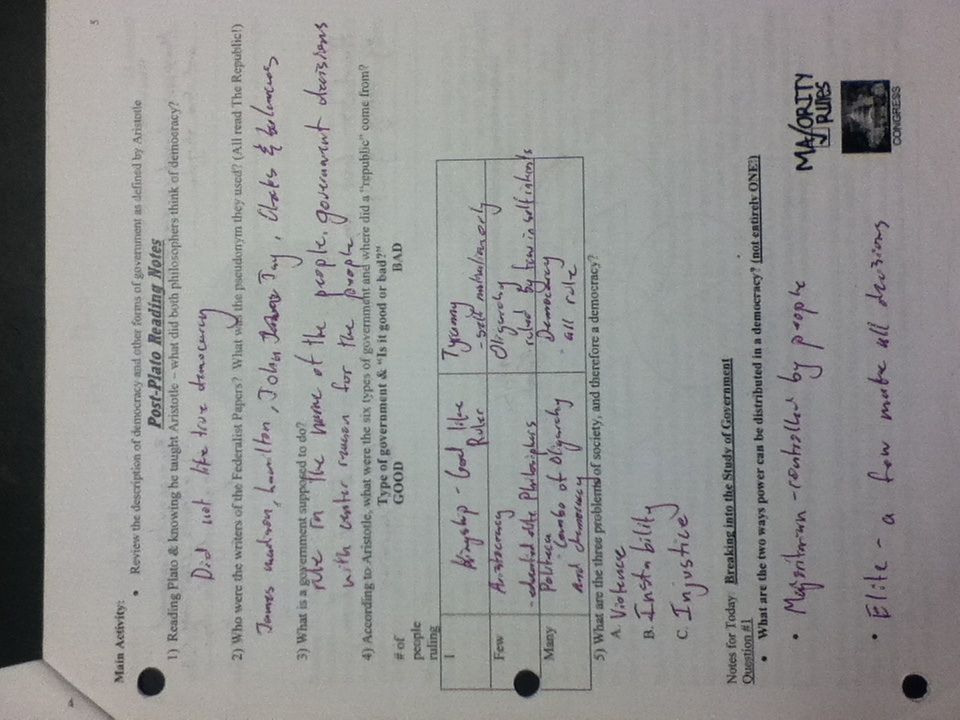 5
Main Activity:
• Review the description of democracy and other forms of government as defined by Aristotle
Post-Plato Reading Notes
1) Reading Plato & knowing he taught Aristotle – what did both philosophers think of democracy?
Did not like true democracy
2) Who were the writers of the Federalist Papers? What was the pseudonym they used? (All read The Republic!)
James madison, hamilton, John Jay, Checks & balances
3) What is a government supposed to do?
rule in the name of the people. government decisions
with reason for the people
4) According to Aristotle, what were the six types of government and where did a "republic" come from?
Type of government & "Is it good or bad?"
# of people ruling GOOD BAD
1 Kingship - God like Ruler Tyranny - self only
Few Aristocracy - educated elite Philosiphers Oligarchy - ruled by few in self intrests
Many - Combo of Oligarchy and democracy Democracy - all rule
5) What are the three problems of society, and therefore a democracy?
A. Violence
B. Instability
C. Injustice
Notes for Today: Breaking into the Study of Government
Question #1
• What are the two ways power can be distributed in a democracy? (not entirely ONE!)
• Majoritarian - controlled by people
MAJORITY
RULES
• Elite - a few make all decisions
CONGRESS